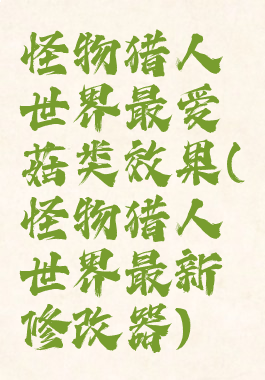 怪物猎人
世界最爱
菇类效果(
怪物猎人
世界最新
修改器)